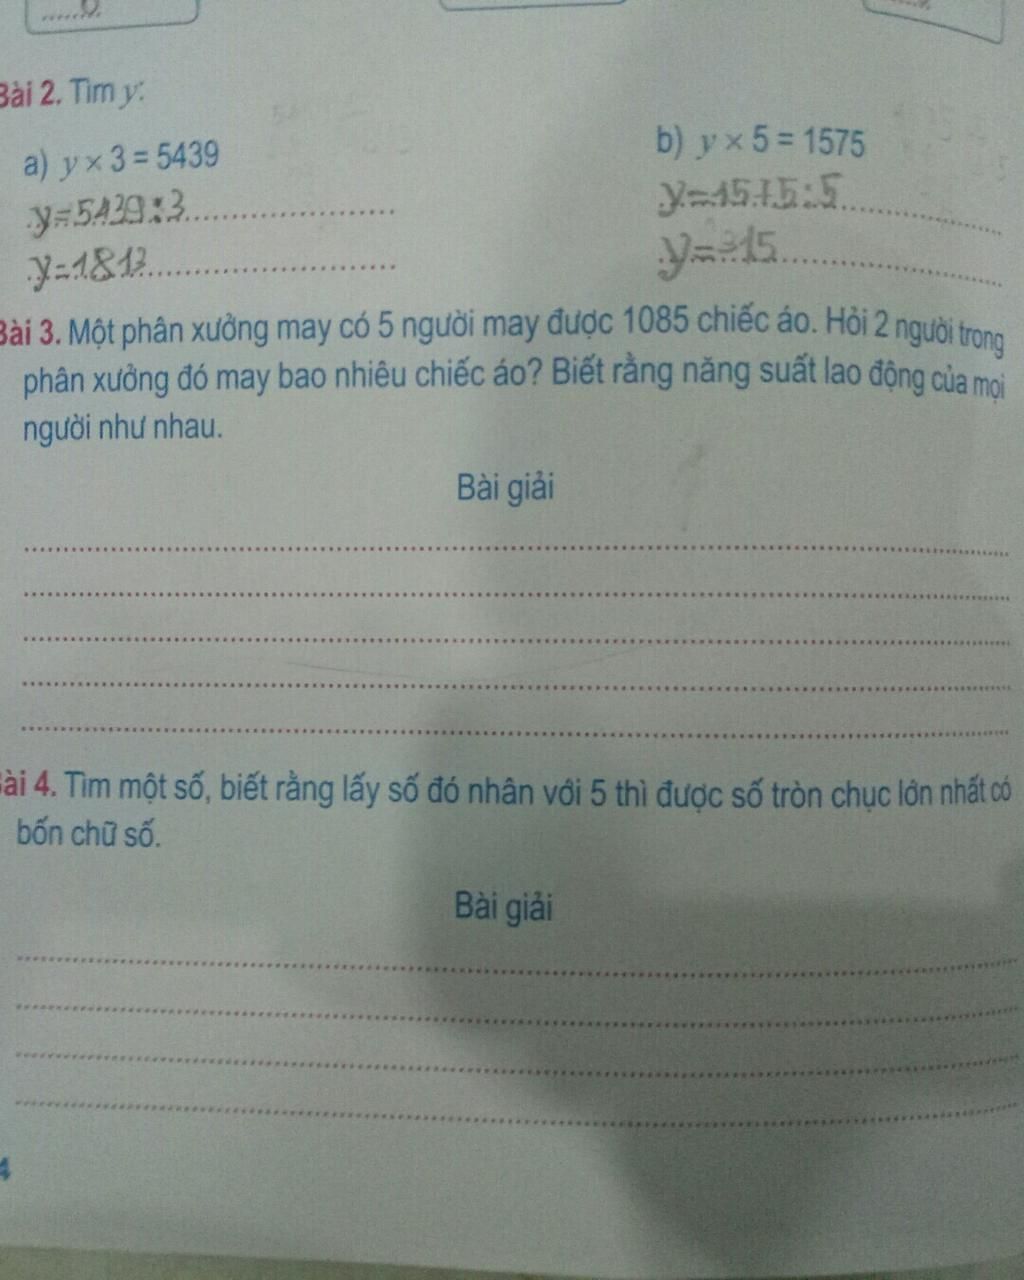 Bài 2. Tìm y:
a) y × 3 = 5439
b) y × 5 = 1575
y=5439:3
y=1575:5
y=1813
y=315
Bài 3. Một phân xưởng may có 5 người may được 1085 chiếc áo. Hỏi 2 người trong
phân xưởng đó may bao nhiêu chiếc áo? Biết rằng năng suất lao động của mọi
người như nhau.
Bài giải
Bài 4. Tìm một số, biết rằng lấy số đó nhân với 5 thì được số tròn chục lớn nhất có
bốn chữ số.
Bài giải
4